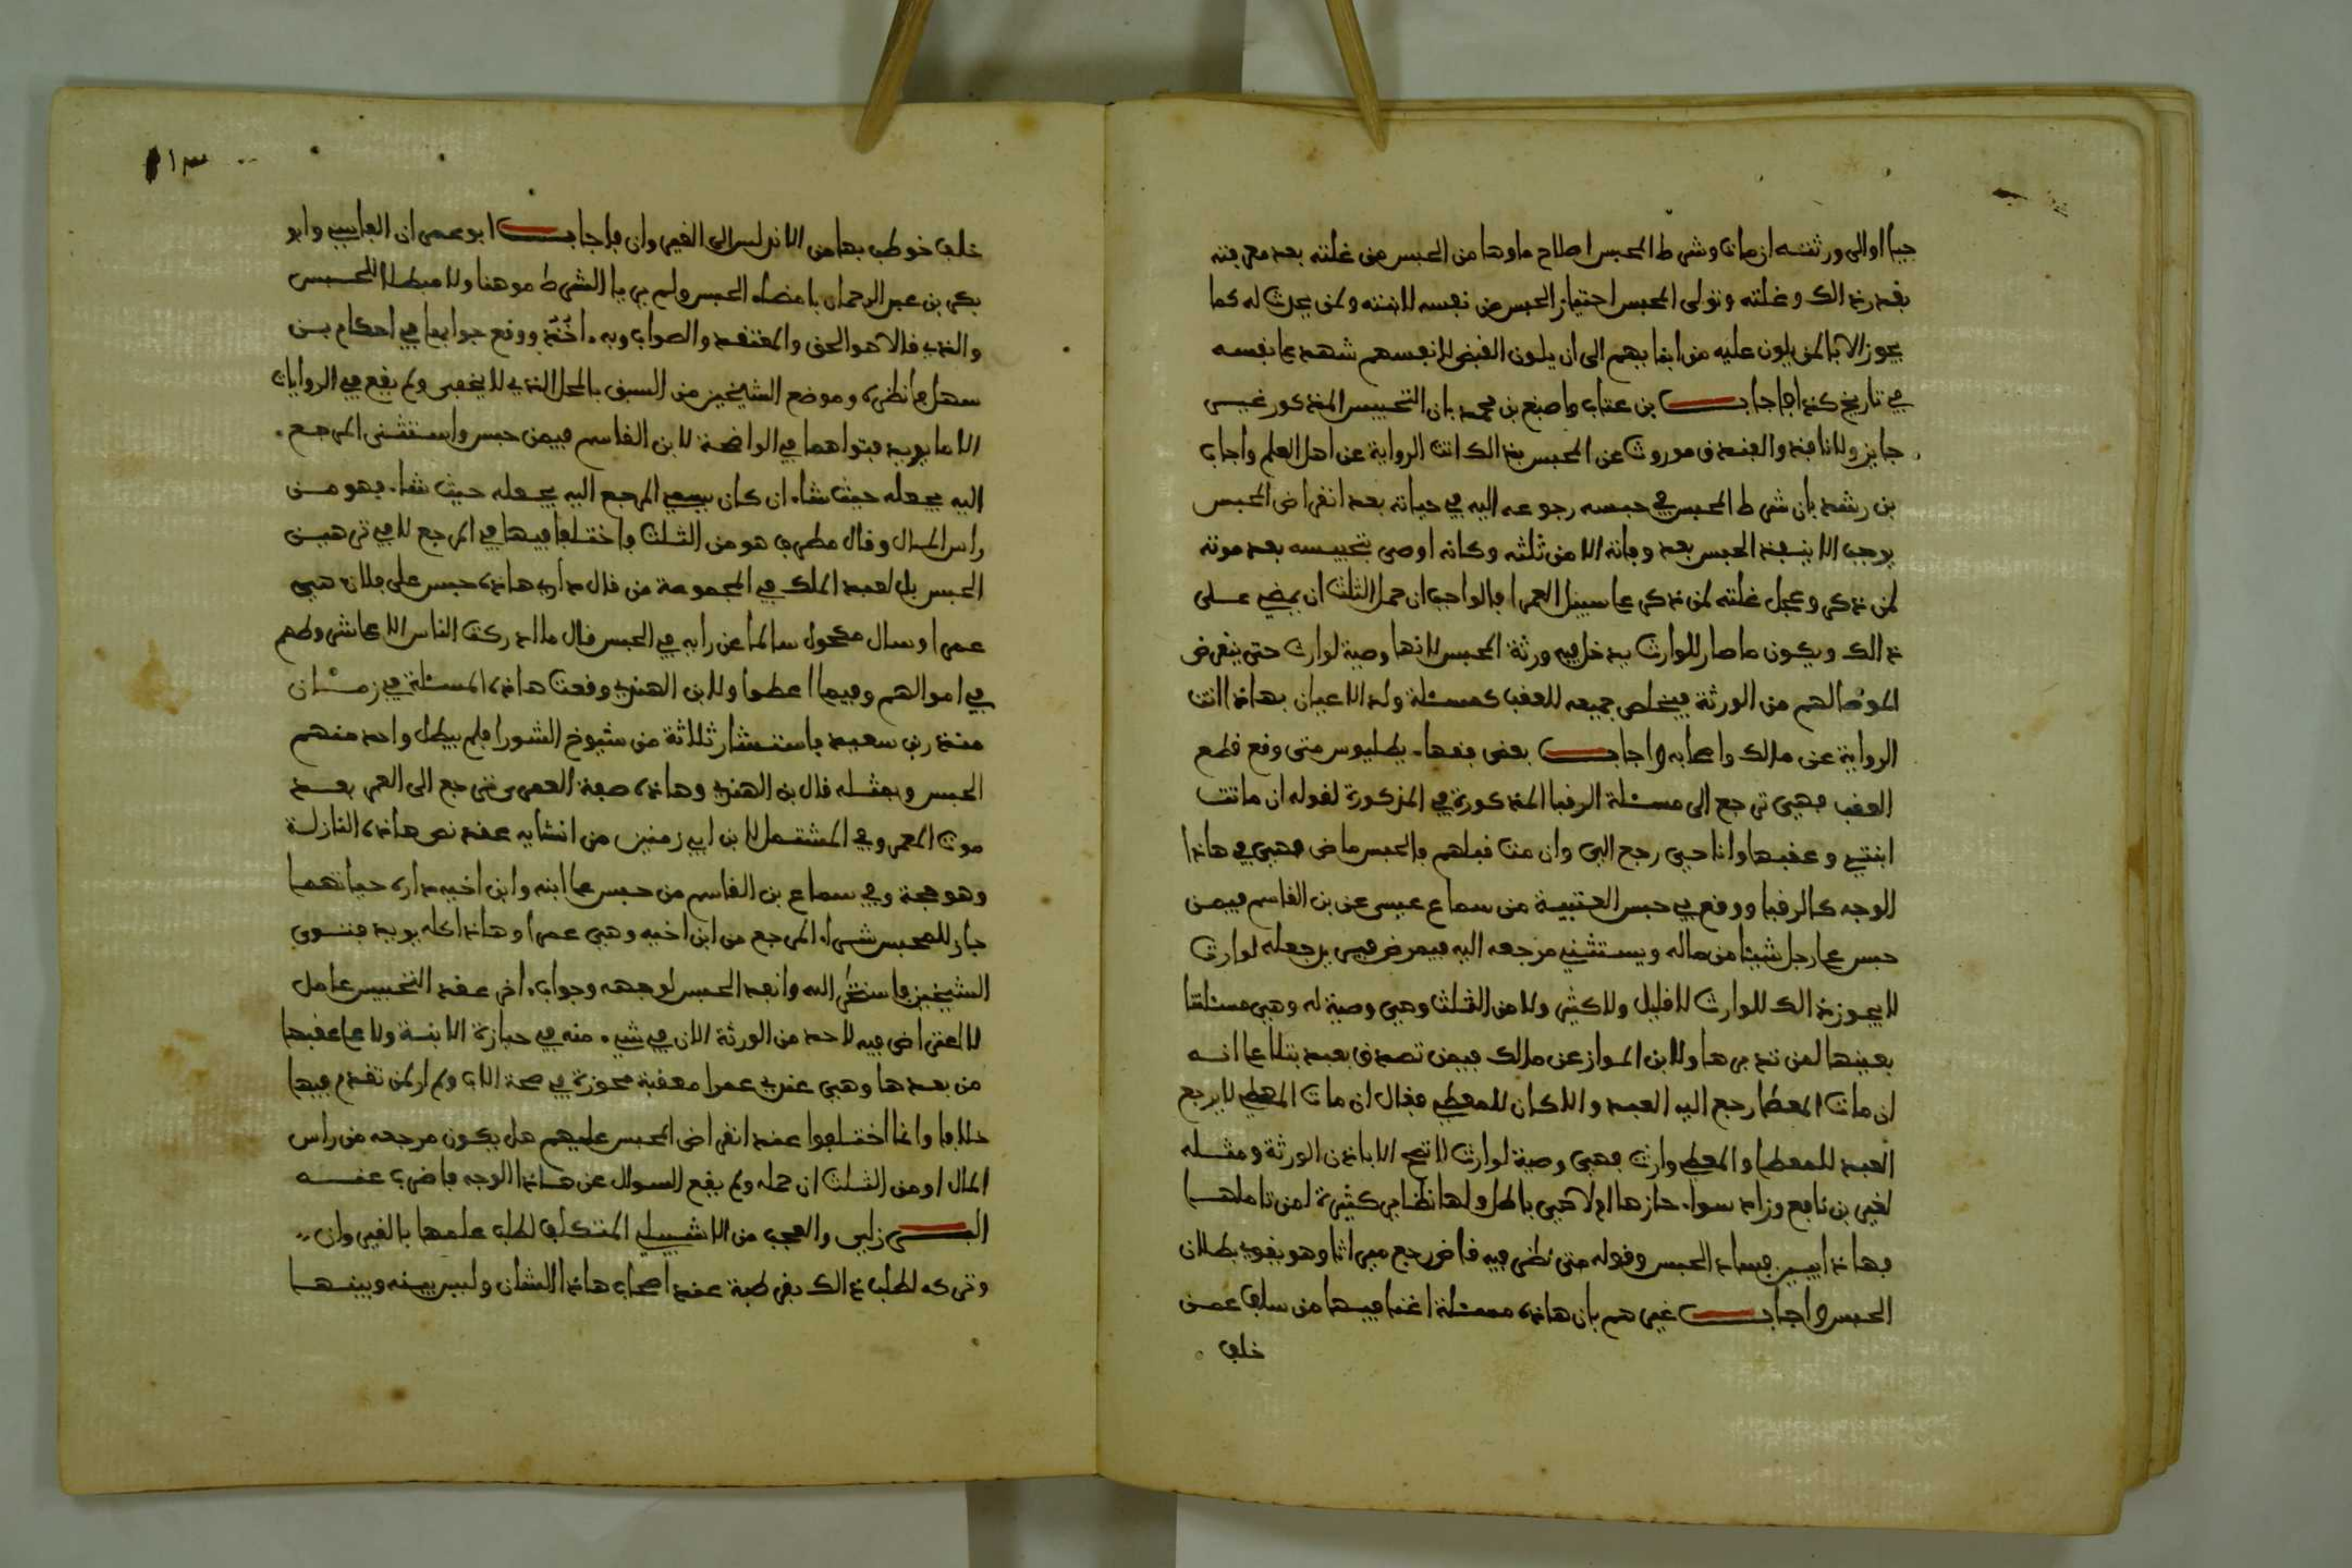 حيا او الى ورثته ان مات وشرط المحبس اصلاح ما وها من الحبس من غلته بعد معرفته
بقدر ذالك وغلته وتولى المحبس احتياز الحبس من نفسه لابنته ولمن يحدث له كما
يجوز الابا لمن يلون عليه من ابنايهم الى ان يلون القبض لانفسهم شهد على نفسه
في تاريخ كذا فاجاب بن عتاب واصبغ بن محمد بان التحبيس المذكور غير
جايز ولا نافذ والفندق موروث عن المحبس بذالك اتت الرواية عن اهل العلم واجاب
بن رشد بان شرط المحبس في حبسه رجوعه اليه في حياته بعد انقراض المحبس
يوجب الا ينفذ الحبس بعد وفاته الا من ثلثه وكانه اوصى بتحبيسه بعد موته
لمن ذكر وعجل غلته لمن ذكر على سبيل العمرا فالواجب ان حمل الثلث ان يمضي على
ذالك ويكون ما صار للوارث يدخل فيه ورثة المحبس لانها وصية لوارث حتى ينقرض
الموصا لهم من الورثة فيخلص جميعه للعقب كمسئلة ولد الاعيان بهاذا اتت
الرواية عن مالك واصحابه واجاب بعض فقهاء بطليوس متى وقع قطع
العقب فهي ترجع الى مسئلة الرقبا المذكورة في المذكورة لقوله ان ماتت
ابنتي وعقبها وانا حي رجع الي وان مت قبلهم فالحبس ماض فهي في هاذا
الوجه كالرقبا ووقع في حبس العتبية من سماع عيسى عن بن القاسم فيمن
حبس على رجل شيئا من ماله ويستثني مرجعه اليه فيمرض فيريد جعله لوارث
لا يجوز ذالك للوارث لا قليل ولا كثير ولا من الثلث وهي وصية له وهي مسئلتنا
بعينها لمن تدبرها ولابن المواز عن مالك فيمن تصدق بعبد بتلا على انه
ان مات المعطا رجع اليه العبد والا كان للمعطي فقال ان مات المعطي لا يرجع
العبد للمعطا والمعطي وارث فهي وصية لوارث لا تصح الا باذن الورثة ومثله
لغير بن نافع وزاد سواء حازها ام لا هي باطل ولها نظاير كثيرة لمن تاملها
فهاذا يبين فساد الحبس وقوله متى نظر فيه قاض رجع ميراثا وهو يقود بطلان
الحبس واجاب غيرهم بان هاذه مسئلة اغنا فيها من سلف عمن
خلف
١٣
خلف خوطب بها من الاندلس الى القيروان فاجاب ابو عمران الفاسي وابو
بكر بن عبد الرحمان بامضاء الحبس ولم يريا الشرط موهنا ولا مبطلا للحبس
والذي قالاه هو الحق والمعتقد والصواب وبه اخذ ووقع جوابهما في احكام بن
سهل فانظره وموضع الشيخين من السبق بالمحل الذي لا يخفى ولم يقع في الروايات
الا ما يويد فتواهما في الواضحة لابن القاسم فيمن حبس واستثنى المرجع
اليه يجعله حيث شاء ان كان بيد المرجع اليه يجعله حيث شاء فهو من
راس المال وقال مطرف هو من الثلث واختلفا فيها في المرجع لا في ترهين
الحبس بل لعبد الملك في المجموعة من قال داري هاذه حبس على فلان هي
عمرا وسال مكحول سالما عن رايه في الحبس قال ما ادركت الناس الا على شروطهم
في اموالهم وفيما اعطوا ولابن الهندي وقعت هاذه المسئلة في زمان
منذر بن سعيد باستشار ثلاثة من شيوخ الشورا فلم يبطل واحد منهم
الحبس وبمثله قال بن الهندي وهاذه صفة العمرى ترجع الى المعمر بعد
موت المعمر وفي المشتمل لابن ابي زمنين من انشايه عقد نص هاذه النازلة
وهو حجة وفي سماع بن القاسم من حبس على ابنه وابن اخيه داره حياتهما
جاز للمحبس شراء المرجع من ابن اخيه وهي عمرا وهاذا كله يويد فتوى
الشيخين فاستخر الله وانفذ الحبس لوجهه وجواب اخر عقد التحبيس عامل
لا اعتراض فيه لاحد من الورثة الان في شيء منه في حيازة الابنة ولا على عقبها
من بعدها وهي عندي عمرا معقبة محوزة في صحة الاب ولم ار لمن تقدم فيها
خلافا وانما اختلفوا عند انقراض المحبس عليهم هل يكون مرجعه من راس
المال او من الثلث ان حمله ولم يقع السوال عن هاذا الوجه فاضرب عنه
البرزلي والعجب من الاشبيلي المتكلف لطلب علمها بالقيروان
وتركه لطلب ذالك بقرطبة عند اصحاب هاذا الشان وليس بينه وبينها